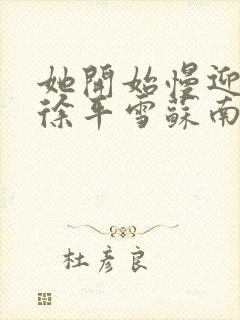 她開始慢迎
徐平雪蘇南
杜彥良